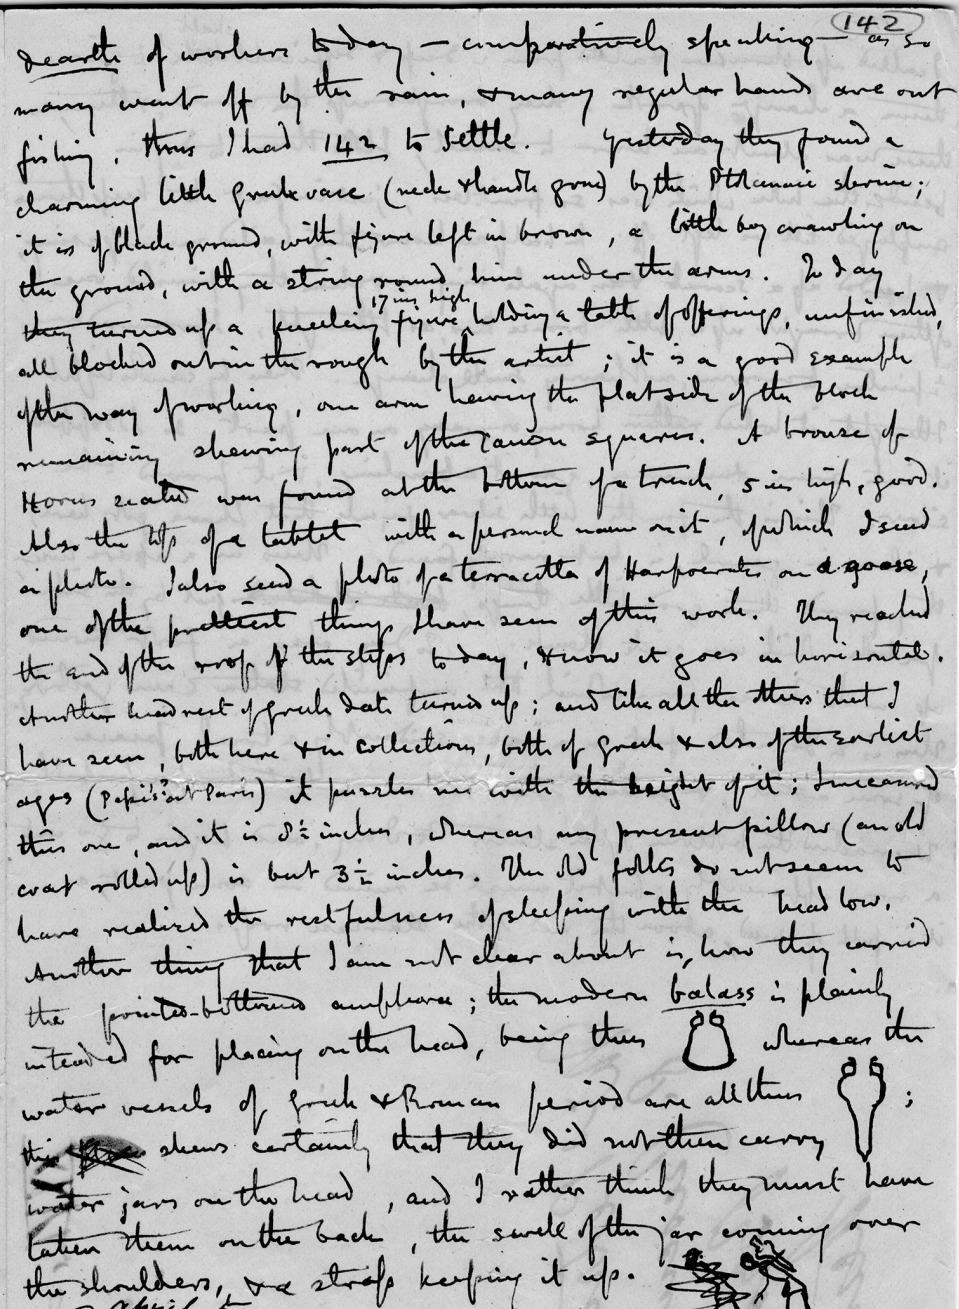 142
dearth of workers to day — comparatively speaking — as so
many went off by the rain, & many regular hands are out
fishing, thus I had 142 to settle. Yesterday they found a
charming little greek vase (neck & handle gone) by the Ptolemaic shrine;
it is of black ground, with figure left in brown, a little boy crawling on
the ground, with a string round him under the arms. To day
17 ins high
they turned up a kneeling figure ^ holding a table of offerings, unfinished,
all blocked out in the rough by the artist; it is a good example
of the way of working, one arm having the flat side of the block
remaining shewing part of the canon squares. A bronze of
Horus seated was found at the bottom of a trench, 5 ins high, good.
Also the top of a tablet with a personal name on it, of which I send
a photo. I also send a photo of a terracotta of Harpocrates on a goose,
one of the prettiest things I have seen of this work. They reached
the end of the roof of the steps to day, & now it goes in horizontal.
Another headrest of greek date turned up; and like all the others that I
have seen, both here & in collections, both of greek & also of the earliest
ages (Pepi's? at Paris) it puzzles me with the height of it; I measured
this one, and it is 8½ inches, whereas my present pillow (an old
coat rolled up) is but 3½ inches. The old folks do not seem to
have realized the restfulness of sleeping with the head low.
Another thing that I am not clear about is, how they carried
the pointed-bottomed amphora; the modern balass is plainly
intended for placing on the head, being thus whereas the
water vessels of greek & Roman period are all thus ;
this shews certainly that they did not then carry
water jars on the head, and I rather think they must have
taken them on the back, the swell of the jar coming over
the shoulders, & a strap keeping it up.
April